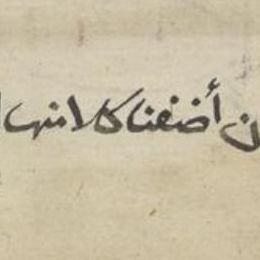 ن أضفنا كلا منها